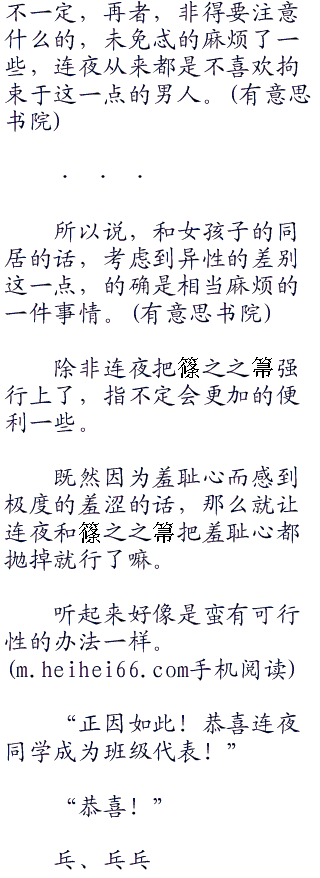 不一定，再者，非得要注意
什么的，未免忒的麻烦了一
些，连夜从来都是不喜欢拘
束于这一点的男人。(有意思
书院)
· · ·
所以说，和女孩子的同
居的话，考虑到异性的差别
这一点，的确是相当麻烦的
一件事情。(有意思书院)
除非连夜把篠之之箒强
行上了，指不定会更加的便
利一些。
既然因为羞耻心而感到
极度的羞涩的话，那么就让
连夜和篠之之箒把羞耻心都
抛掉就行了嘛。
听起来好像是蛮有可行
性的办法一样。
(m.heihei66.com手机阅读)
“正因如此！恭喜连夜
同学成为班级代表！”
“恭喜！”
乓、乓乓